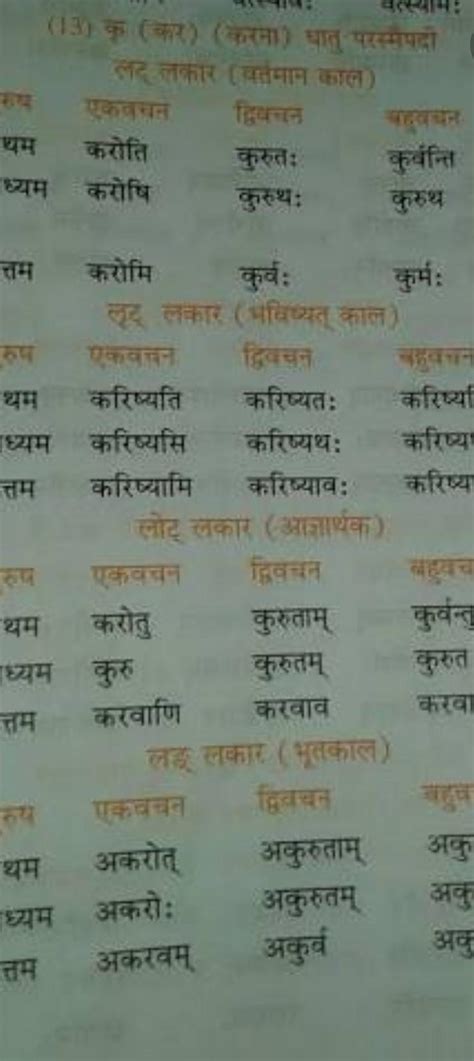 वत्स्यावः वत्स्यामः
(13) कृ (कर) (करना) धातु परस्मैपदी
लट् लकार (वर्तमान काल)
रुष एकवचन द्विवचन बहुवचन
थम करोति कुरुतः कुर्वन्ति
ध्यम करोषि कुरुथः कुरुथ
त्तम करोमि कुर्वः कुर्मः
लृट् लकार (भविष्यत् काल)
रुष एकवचन द्विवचन बहुवचन
थम करिष्यति करिष्यतः करिष्य
ध्यम करिष्यसि करिष्यथः करिष्य
त्तम करिष्यामि करिष्यावः करिष्य
लोट् लकार (आज्ञार्थक)
रुष एकवचन द्विवचन बहुवच
थम करोतु कुरुताम् कुर्वन्तु
ध्यम कुरु कुरुतम् कुरुत
त्तम करवाणि करवाव करवा
लङ् लकार (भूतकाल)
रुष एकवचन द्विवचन बहुव
थम अकरोत् अकुरुताम् अकु
ध्यम अकरोः अकुरुतम् अकु
त्तम अकरवम् अकुर्व अकु